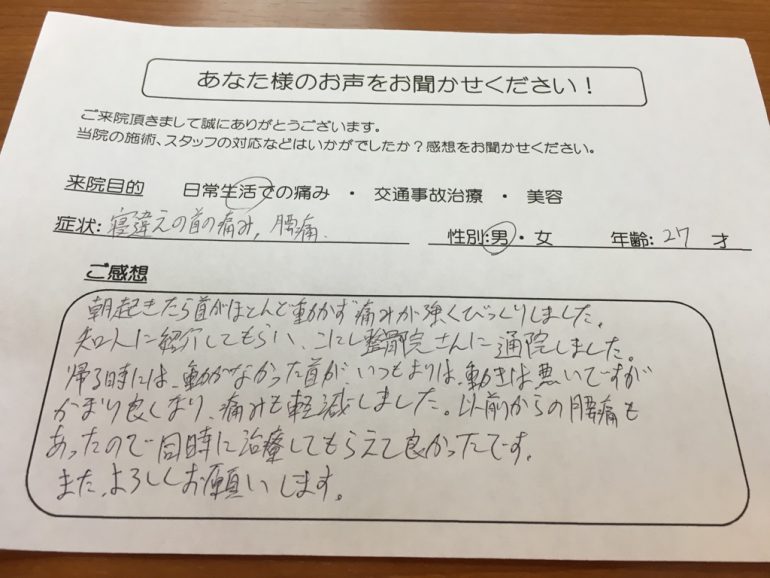 あなた様のお声をお聞かせください！
ご来院頂きまして誠にありがとうございます。
当院の施術、スタッフの対応などはいかがでしたか？感想をお聞かせください。
来院目的 日常生活での痛み ・ 交通事故治療 ・ 美容
症状: 寝違えの首の痛み, 腰痛. 性別:男・女 年齢: 27 才
ご感想
朝起きたら首がほとんど動かず痛みが強くびっくりしました。
知人に紹介してもらい、こにし整骨院さんに通院しました。
帰る時には、動がなかった首が、いつもよりは、動きは悪いですが
かなり良くなり、痛みも軽減しました。以前からの腰痛も
あったので同時に治療してもらえて良かったです。
また、よろしくお願いします。